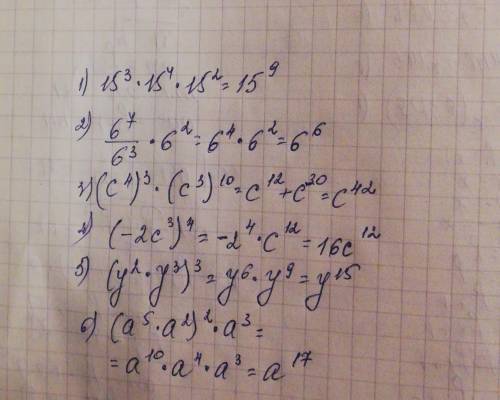 1) 15³·15⁴·15²=15⁹
2) 6⁷/6³·6²=6⁴·6²=6⁶
3) (c⁴)³·(c³)¹⁰=c¹²+c³⁰=c⁴²
4) (-2c³)⁴=-2⁴·c¹²=16c¹²
5) (y²·y³)³=y⁶·y⁹=y¹⁵
6) (a⁵·a²)²·a³=
=a¹⁰·a⁴·a³=a¹⁷